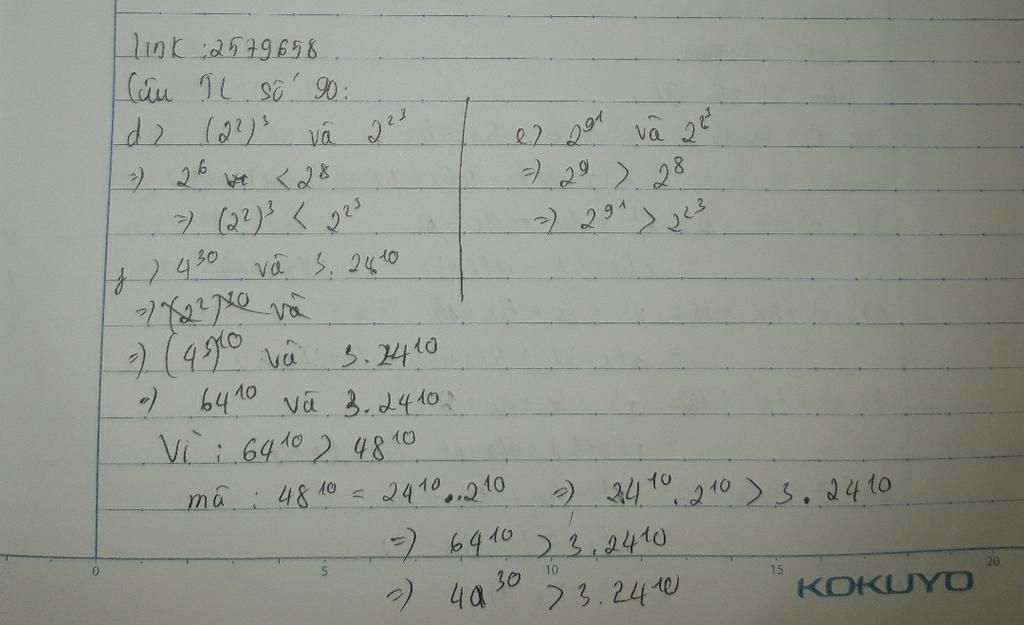 link : 2579658
Câu TL số 90:
d > (2²)³ và 2^2^3
=> 2⁶ < 2⁸
=> (2²)³ < 2^2^3
e > 2^9^1 và 2^2^3
=> 2⁹ > 2⁸
=> 2^9^1 > 2^2^3
f > 4³⁰ và 3.24¹⁰
=> (2²)³⁰ và
=> (4³)¹⁰ và 3.24¹⁰
=> 64¹⁰ và 3.24¹⁰
Vì : 64¹⁰ > 48¹⁰
mà : 48¹⁰ = 24¹⁰.2¹⁰ => 24¹⁰.2¹⁰ > 3.24¹⁰
=> 64¹⁰ > 3.24¹⁰
=> 4³⁰ > 3.24¹⁰
0 5 10 15 20
KOKUYO